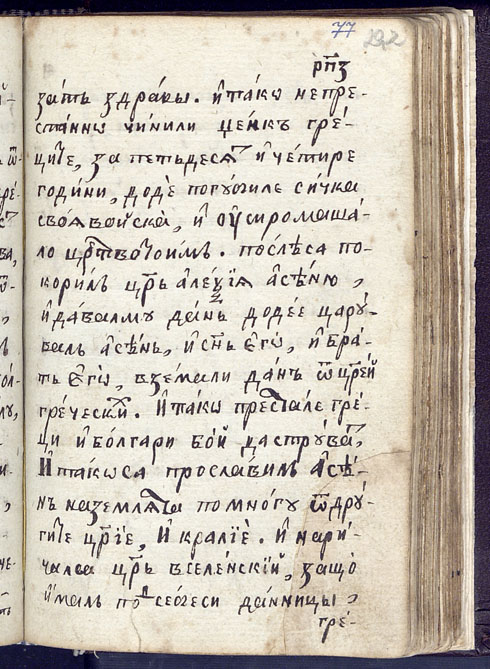 77
292
рп҃з
за́тъ здра́вы. И҆та́кѡ непре-
ста́ннѡ чи́нили ценкъ гре́-
ците, за петьдеса҆т и҆ че́тире
годи́ни, додѐ погу́биле си́чка
своѧ҆ во́йска, и҆ ᲂу҆сирома́ша-
ло црⷭ҇тво тои́мъ. после́са по-
кори́лъ цр҃ь але́ѯїѧ а҆се́ню,
и҆ дава́лмꙋ да́нь доде́е цару́-
валъ А҆се́нь, и҆ сн҃ъ є҆гѡ̀, и҆ бра́-
тъ є҆гѡ̀, вземали да́нъ ѿ цр҃ей
гре́чески. И҆та́кѡ преста́ле гре́-
ци и҆ бо́лгари бо́й да стру́ват,
И҆ та́кѡ са просла́вилъ А҆се́-
нъ на землѧ́та по мно́гу ѿ дрꙋ́-
гите цр҃їе, И҆ кралїѐ. И҆ нари́-
чалса цр҃ь вселе́нскїй, защо̀
и҆́малъ под себеси да́нницы,
гре́-